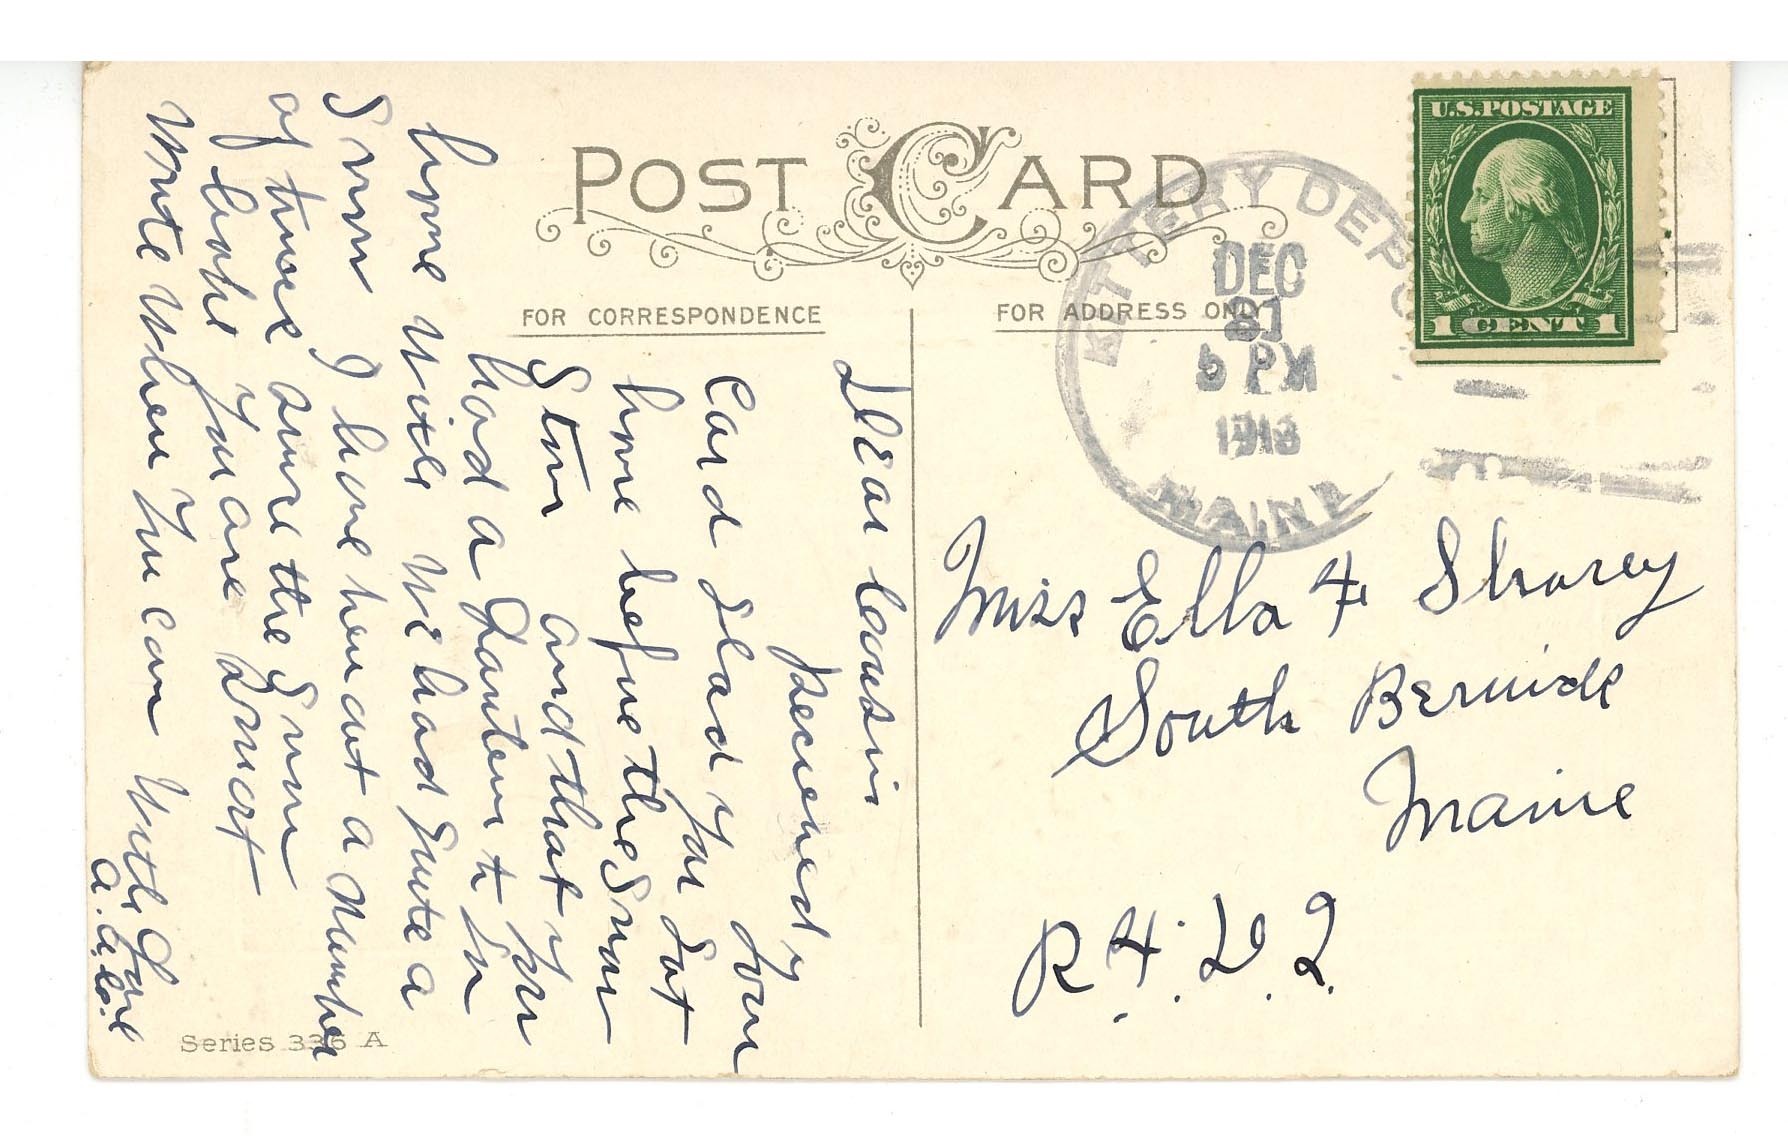 POST CARD
FOR CORRESPONDENCE
FOR ADDRESS ONLY
KITTERY DEPO
DEC
31
5 PM
1913
MAINE
U.S. POSTAGE
1 CENT 1
Miss Ella F Shorey
South Berwick
Maine
R. F. D. 2.
Dear Cousin
Received your
Card Glad you Got
home before the Snow
Storm and that you
had a Lantern to Go
home with We had quite a
Snow I have been out a number
of times since the Snow
of hope you are Smart
Write when you can With Love
Series 336 A